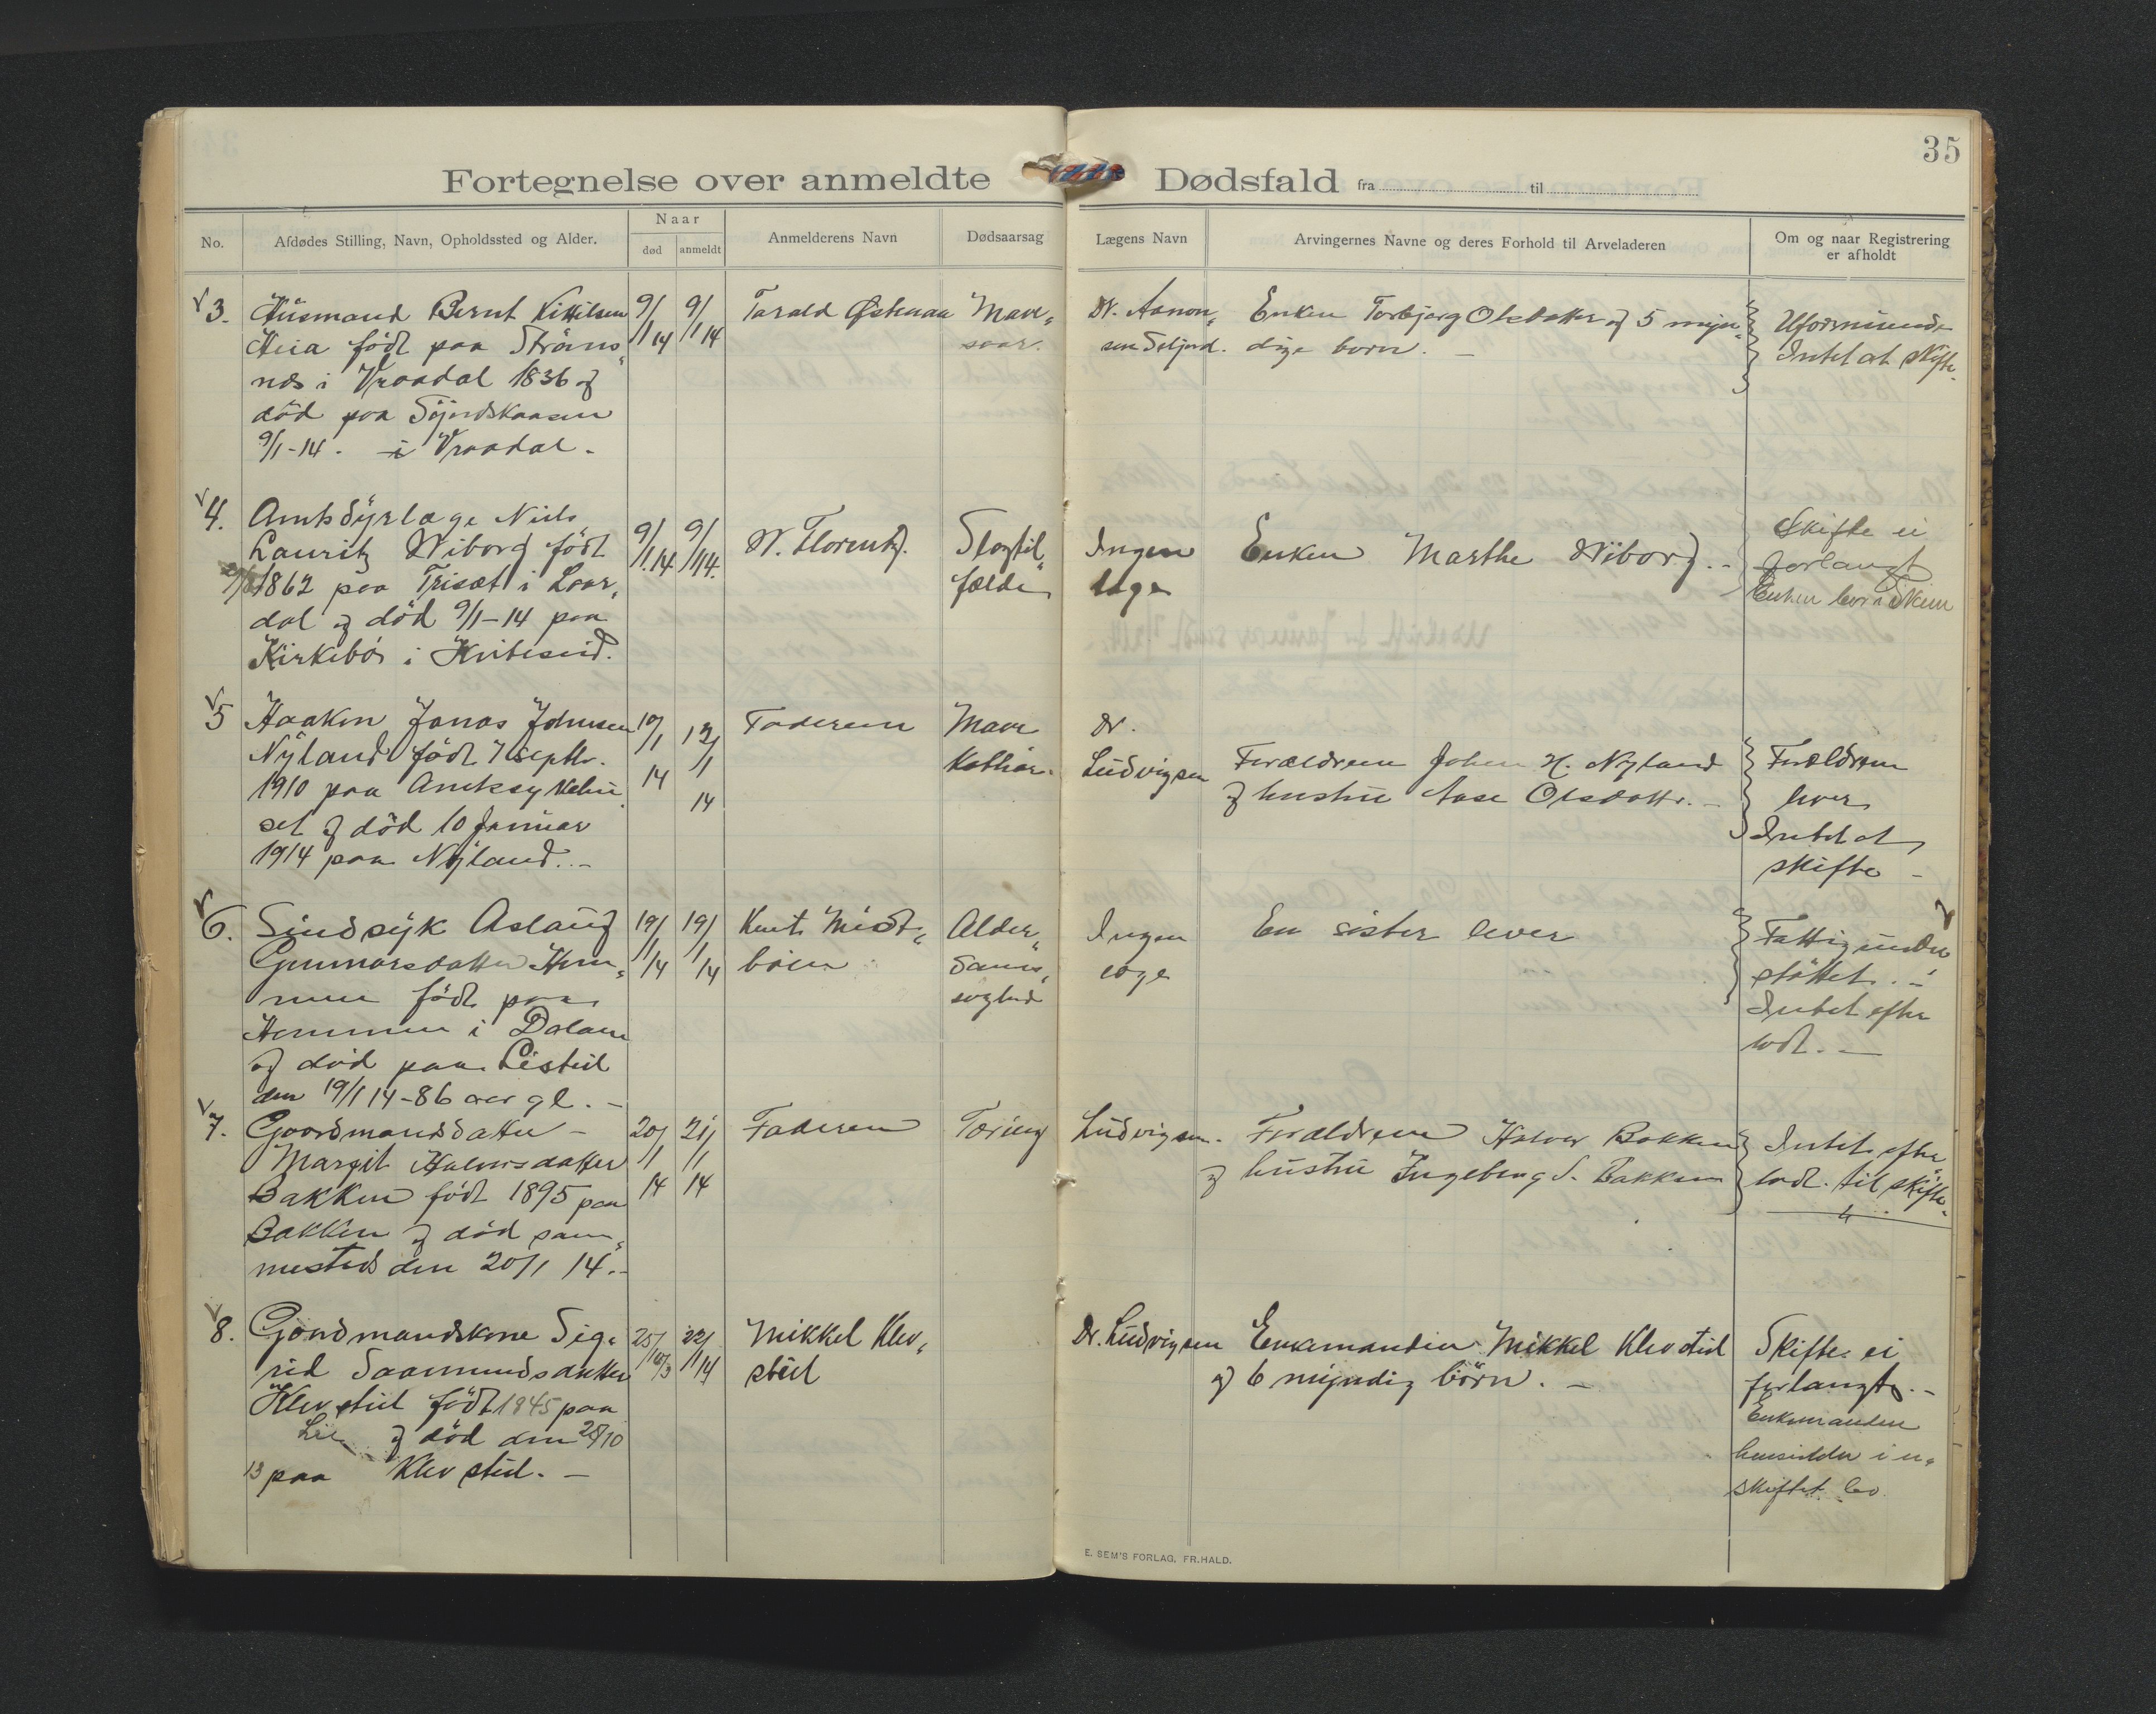 35
Fortegnelse over anmeldte Dødsfald fra til
No.
Afdødes Stilling, Navn, Opholdssted og Alder.
Naar
død
anmeldt
Anmelderens Navn
Dødsaarsag
Lægens Navn
Arvingernes Navne og deres Forhold til Arveladeren
Om og naar Registrering
er afholdt
3.
Husmand Bernt Kittilsen
Heia født paa Strāns„
nes i Vraadal 1836 og
død paa
9/1-14. i Vraadal.
9/1 14
9/1 14
Tarald Østenaa
Mave„
saar.
Dr. Aanon„
sen Seljord.
Enken Torbjørg Olsdatter og 5 myn„
dige børn. –
Uformuende
Intet at skifte.
4.
Amtsdyrlæge Niels
Lauritz Wiborg født
1862 paa Trisæt i Laar„
dal og død 9/1-14 paa
Kirkebø i Hvideseid.
9/1.14
9/1 14.
W. Florentz.
Slagtil„
fælde
Ingen
læge
Enken Marthe Wiborg. -
Skifte ei
forlangt
Enken bor i Skien
5
Haakon Jonas Johnsen
Nyland født 7 septbr.
1910 paa Amtssykehu„
set og død 10 Januar
1914 paa Nyland. -
10/1 14
12/1 14
Faderen
Mave
Kathar.
Dr.
Ludvigsen
Forældrene John H. Nyland
og hustru Aase Olsdattr. -
Forældrene
lever
Intet at
skifte -
6.
Sindsyk Aslaug
Gunnarsdatter Hem„
men født paa
Hemmen i Dalane
og død paa Listul
den 19/1 14-86 aar gl. -
19/1 14
19/1 14
Knut Midt„
bøen
Alder„
doms„
svaghed
Ingen
læge
En søster lever
Fattigunder
støttet. -
Intet efter
ladt. -
7.
Gaardmandsdatter -
Margit Halvorsdatter
Bakken født 1895 paa
Bakken og død sam„
mesteds den 20/1 14. -
20/1 14
21/1 14
Faderen
Tæring
Ludvigsen.
Forældrene Halvor Bakken
og hustru Ingeborg S. Bakken
Intet efter
ladt til skifte.
8.
Gaardmandskone Sig„
rid Saamundsdatter
Klevstul født 1845 paa
Lie og død den 25/10
13 paa Klevstul. -
25/10 13
22/1 14
Mikkel Klev„
stul
Dr. Ludvigsen
Enkemanden Mikkel Klevstul
og 6 myndig børn. -
Skifte ei
forlangt. -
Enkemanden
hensidder i u„
skiftet bo
E. SEM'S FORLAG, FR.HALD.